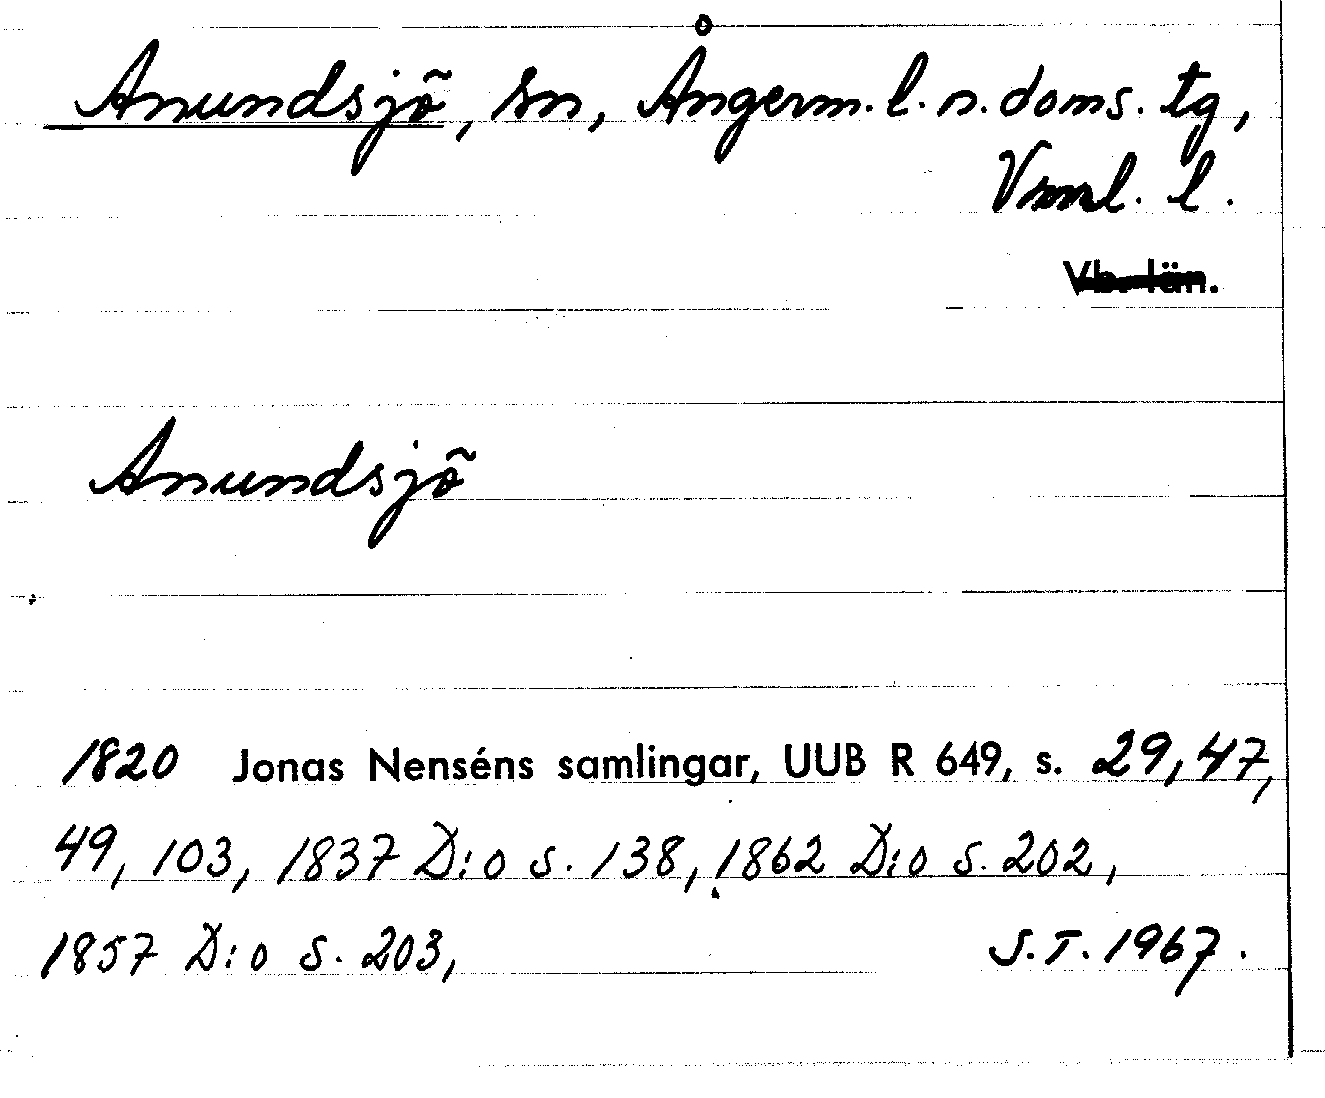 Anundsjö, sn, Ångerm. l. n. doms. tg,
Vnrl. l.
Vb. län.
Anundsjö
1820 Jonas Nenséns samlingar, UUB R 649, s. 29, 47,
49, 103, 1837 D:o s. 138, 1862 D:o s. 202,
1857 D:o s. 203,
S.T. 1967.